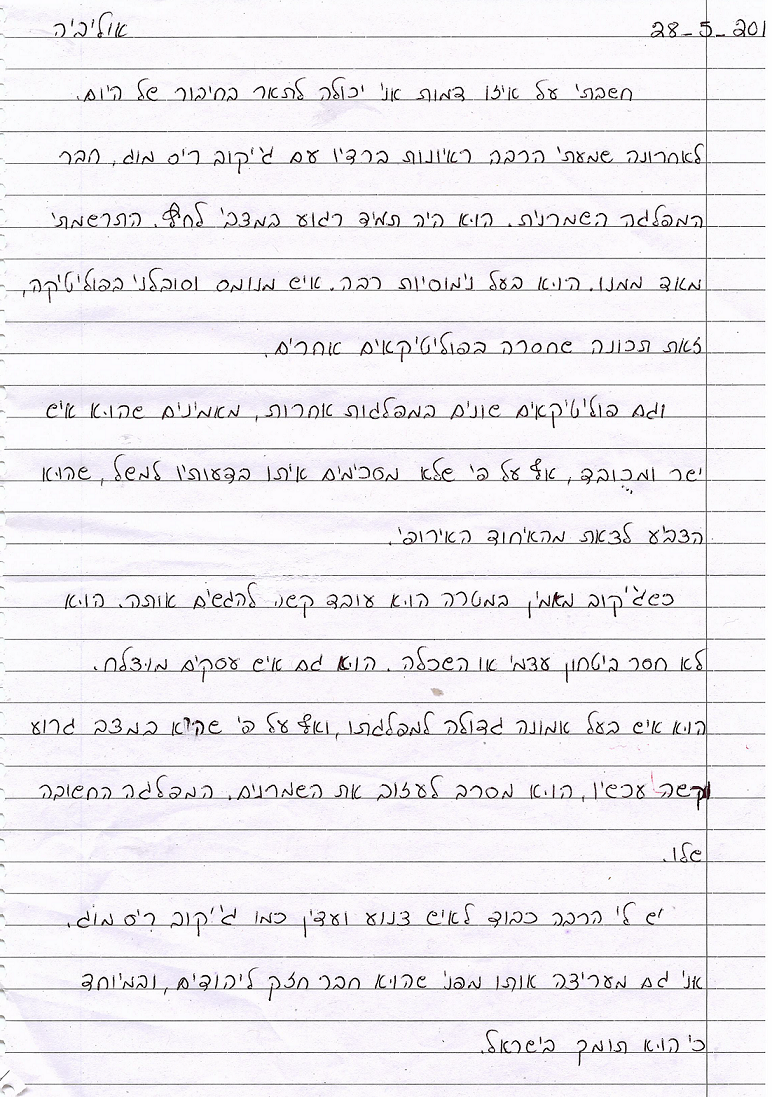 אוליביה 28-5-201
חשבתי על איזו דמות אני יכולה לתאר בחיבור של היום.
לאחרונה שמעתי הרבה ראיונות ברדיו עם ג'יקוב ריס מוג, חבר
המפלגה השמרנית. הוא היה תמיד רגוע במצבי לחץ. התרשמתי
מאד ממנו. הוא בעל נימוסיות רבה. איש מנומס וסובלני בפוליטיקה,
זאת תכונה שחסרה בפוליטיקאים אחרים.
וגם פוליטיקאים שונים במפלגות אחרות, מאמינים שהוא איש
ישר ומכובד, אף על פי שלא מסכימים איתו בדעותיו למשל, שהוא
הצביע לצאת מהאיחוד האירופי.
כשג'יקוב מאמין במטרה הוא עובד קשה להגשים אותה. הוא
לא חסר ביטחון עצמי או השכלה. הוא גם איש עסקים מוצלח.
הוא איש בעל אמונה גדולה למפלגתו, ואף על פי שהיא במצב גרוע
וקשה עכשיו, הוא מסרב לעזוב את השמרנים. המפלגה החשובה
שלו.
יש לי הרבה כבוד לאיש צנוע ועדין כמו ג'יקוב ריס מוג.
אני גם מעריצה אותו מפני שהוא חבר חזק ליהודים, ובמיוחד
כי הוא תומך בישראל.